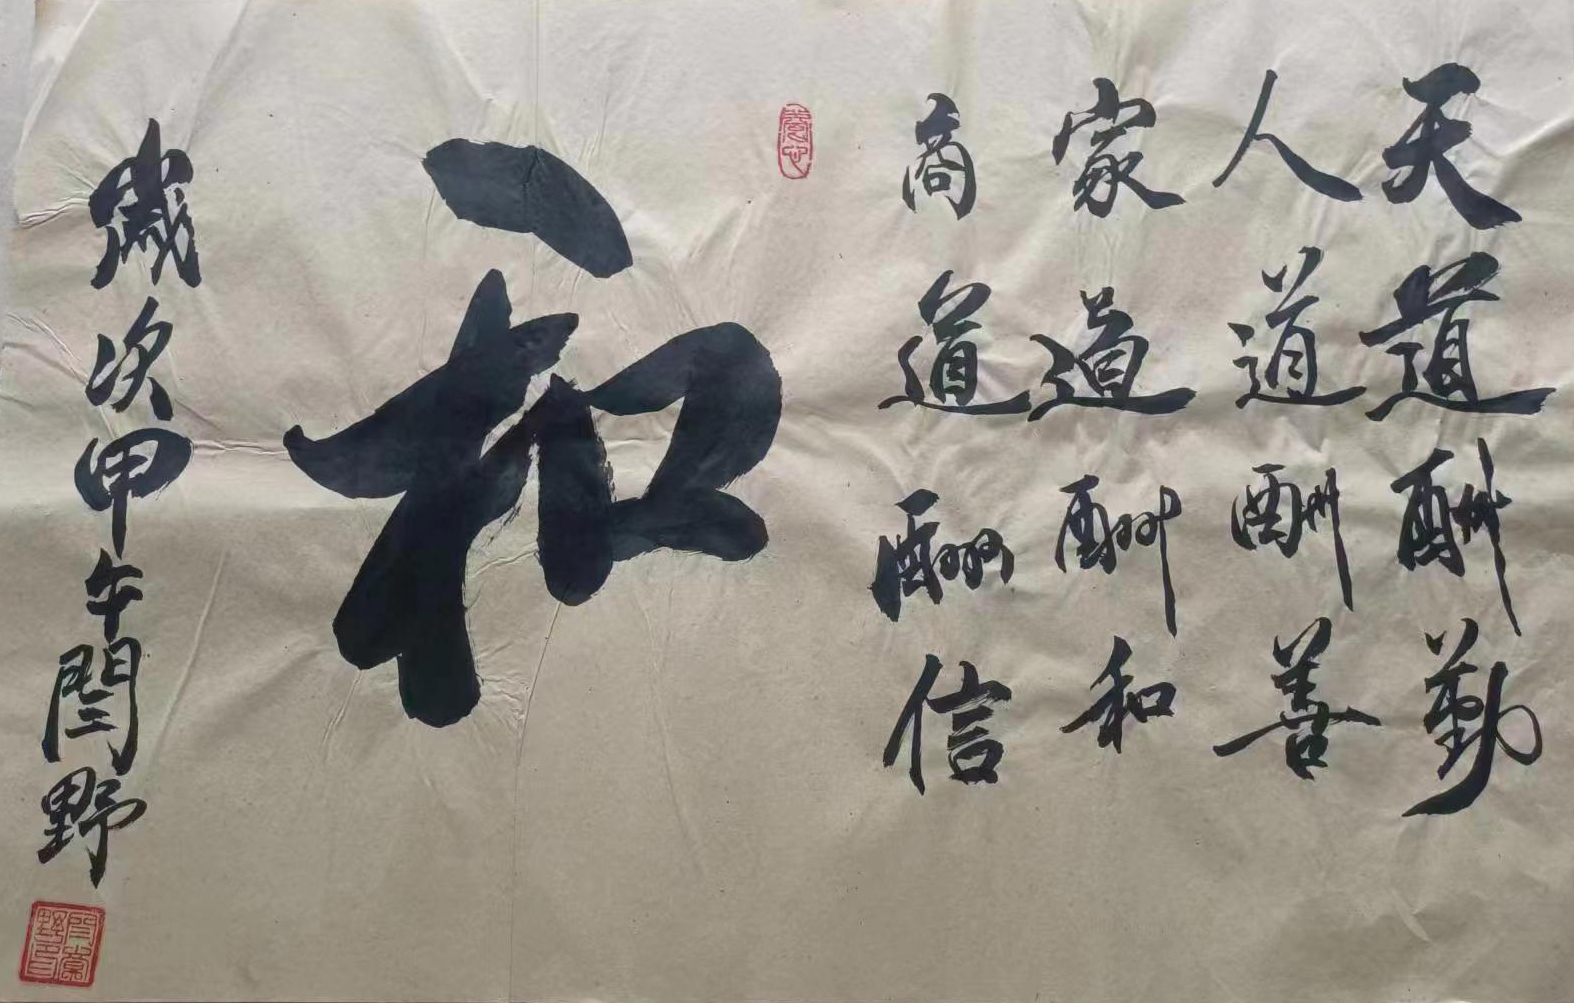 天道酬勤
人道酬善
家道酬和
商道酬信
和
歲次甲午閆野